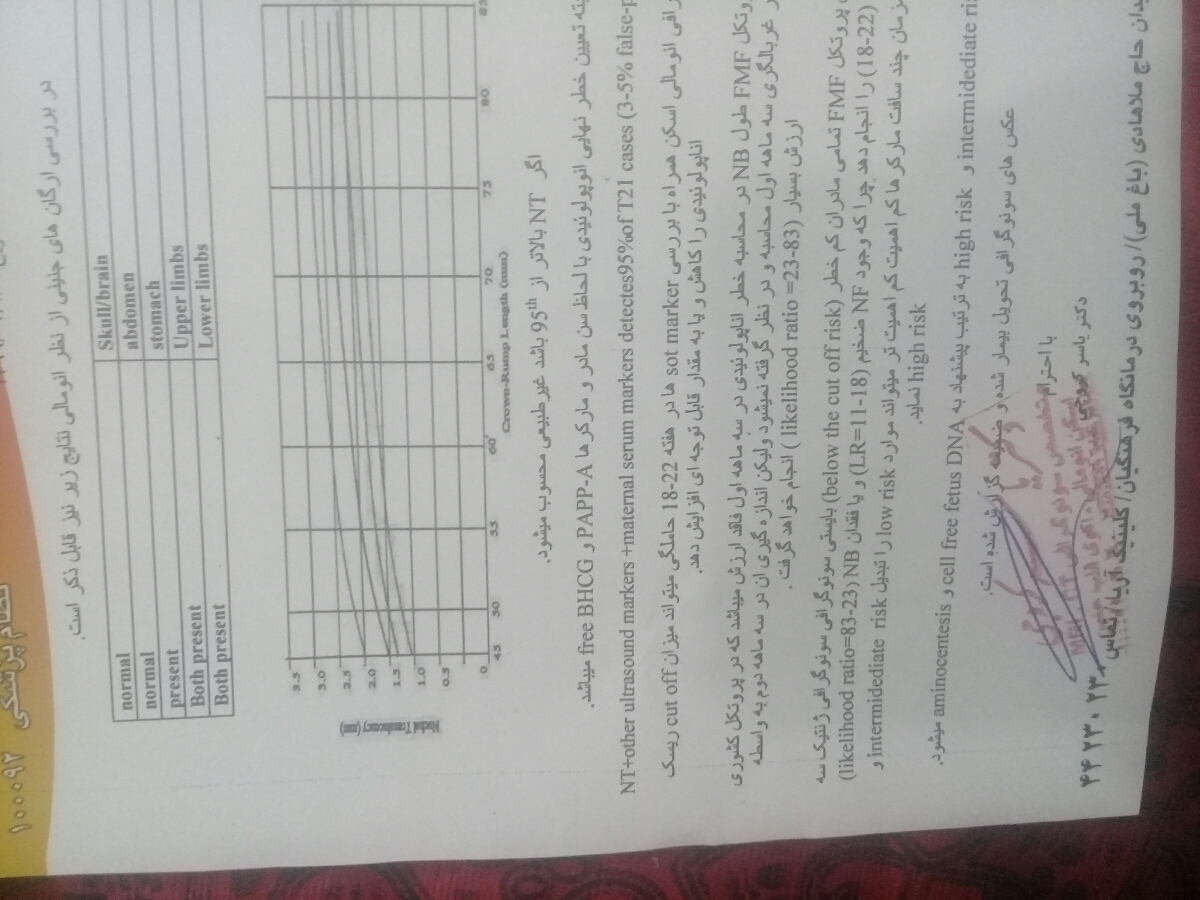 نظام پزشکی ۱۰۰۰۹۲
در بررسی ارگان های جنینی از نظر انومالی نتایج زیر نیز قابل ذکر است.
normal Skull/brain
normal abdomen
present stomach
Both present Upper limbs
Both present Lower limbs
3.5
3.0
2.5
2.0
1.5
1.0
0.5
0
45 50 55 60 65 70 75 80 85
Crown-Rump Length (mm)
اگر NT بالاتر از 95th باشد غیر طبیعی محسوب میشود.
تعیین خطر نهایی انوپولوئیدی با لحاظ سن مادر و مارکرها PAPP-A و free BHCG میباشد.
NT+other ultrasound markers +maternal serum markers detectes95%of T21 cases (3-5% false-
انومالی اسکن همراه با بررسی sot marker ها در هفته 18-22 حاملگی میتواند میزان cut off ریسک
اناپولوئیدی را کاهش و یا به مقدار قابل توجه ای افزایش دهد.
FMF طول NB در محاسبه خطر اناپولوئیدی در سه ماهه اول فاقد ارزش میباشد که در پروتکل کشوری
غربالگری سه ماهه اول محاسبه و در نظر گرفته نمیشود ولیکن اندازه گیری ان در سه ماهه دوم به واسطه
ارزش بسیار (likelihood ratio =23-83) انجام خواهد گرفت.
پروتکل FMF تمامی مادران کم خطر (below the cut off risk) بایستی سونوگرافی سونوگرافی ژنتیک سه
(18-22) را انجام دهد چرا که وجود NF ضخیم (LR=11-18) و یا فقدان NB (likelihood ratio=83-23)
چند سافت مارکرها کم اهمیت کم اهمیت تر میتواند موارد low risk را تبدیل intermidediate risk و
high risk نماید.
intermidediate و high risk به ترتیب پیشنهاد به cell free fetus DNA و aminocentesis میشود.
عکس های سونوگرافی تحویل بیمار شده و ضمیمه گزارش شده است.
با احترام
دکتر یاسر
حاج ملاهادی (باغ ملی)/ روبروی درمانگاه فرهنگیان/ کلینیک آریا/ تماس
۴۴۲۲۳۰۲۳